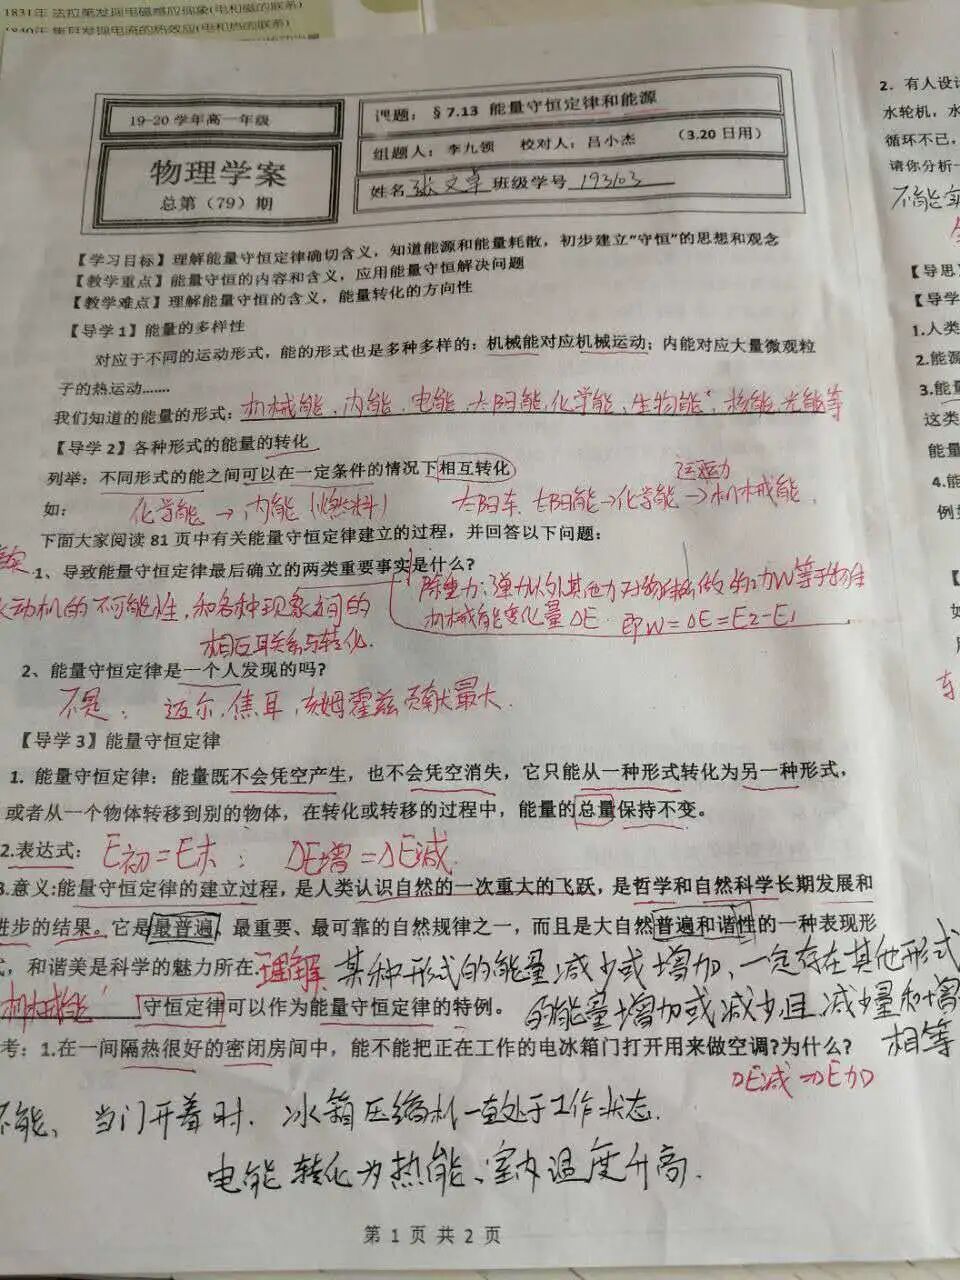 1831年 法拉第发现电磁感应现象(电和磁的联系)
1840年 焦耳发现电流的热效应(电和热的联系)
19-20学年高一年级
物理学案
总第（79）期
课题：§7.13 能量守恒定律和能源
组题人：李九领 校对人：吕小杰 （3.20日用）
姓名 张文卓 班级学号 193103
【学习目标】理解能量守恒定律确切含义，知道能源和能量耗散，初步建立“守恒”的思想和观念
【教学重点】能量守恒的内容和含义，应用能量守恒解决问题
【教学难点】理解能量守恒的含义，能量转化的方向性
【导学1】能量的多样性
对应于不同的运动形式，能的形式也是多种多样的：机械能对应机械运动；内能对应大量微观粒
子的热运动.......
我们知道的能量的形式：机械能、内能、电能、太阳能、化学能、生物能、核能、光能等
【导学2】各种形式的能量的转化
列举：不同形式的能之间可以在一定条件的情况下相互转化
如：化学能→内能（燃料） 太阳车 太阳能→化学能→机械能
下面大家阅读81页中有关能量守恒定律建立的过程，并回答以下问题：
1、导致能量守恒定律最后确立的两类重要事实是什么？
动机的不可能性，和各种现象之间的
相互联系与转化.
除重力、弹力以外其他力对物体做的功W等于物体
机械能变化量ΔE 即W=ΔE=E2-E1
2、能量守恒定律是一个人发现的吗？
不是： 迈尔、焦耳、亥姆霍兹贡献最大.
【导学3】能量守恒定律
1. 能量守恒定律：能量既不会凭空产生，也不会凭空消失，它只能从一种形式转化为另一种形式，
或者从一个物体转移到别的物体，在转化或转移的过程中，能量的总量保持不变。
2.表达式：E初=E末； ΔE增=ΔE减
3.意义:能量守恒定律的建立过程，是人类认识自然的一次重大的飞跃，是哲学和自然科学长期发展和
进步的结果。它是最普遍、最重要、最可靠的自然规律之一，而且是大自然普遍和谐性的一种表现形
式，和谐美是科学的魅力所在
理解 某种形式的能量减少或增加，一定存在其他形式
的能量增加或减少，且减少量和增
相等
机械能守恒定律可以作为能量守恒定律的特例。
考：1.在一间隔热很好的密闭房间中，能不能把正在工作的电冰箱门打开用来做空调?为什么?
ΔE减=ΔE加
不能、当门开着时.冰箱压缩机一直处于工作状态.
电能转化为热能、室内温度升高.
第 1 页 共 2 页
2．有人设
水轮机，水
循环不已，
请你分析
不能
【导思】
【导学
1.人类
2.能源
3.能量
这类
能量
4.能
例
【导学